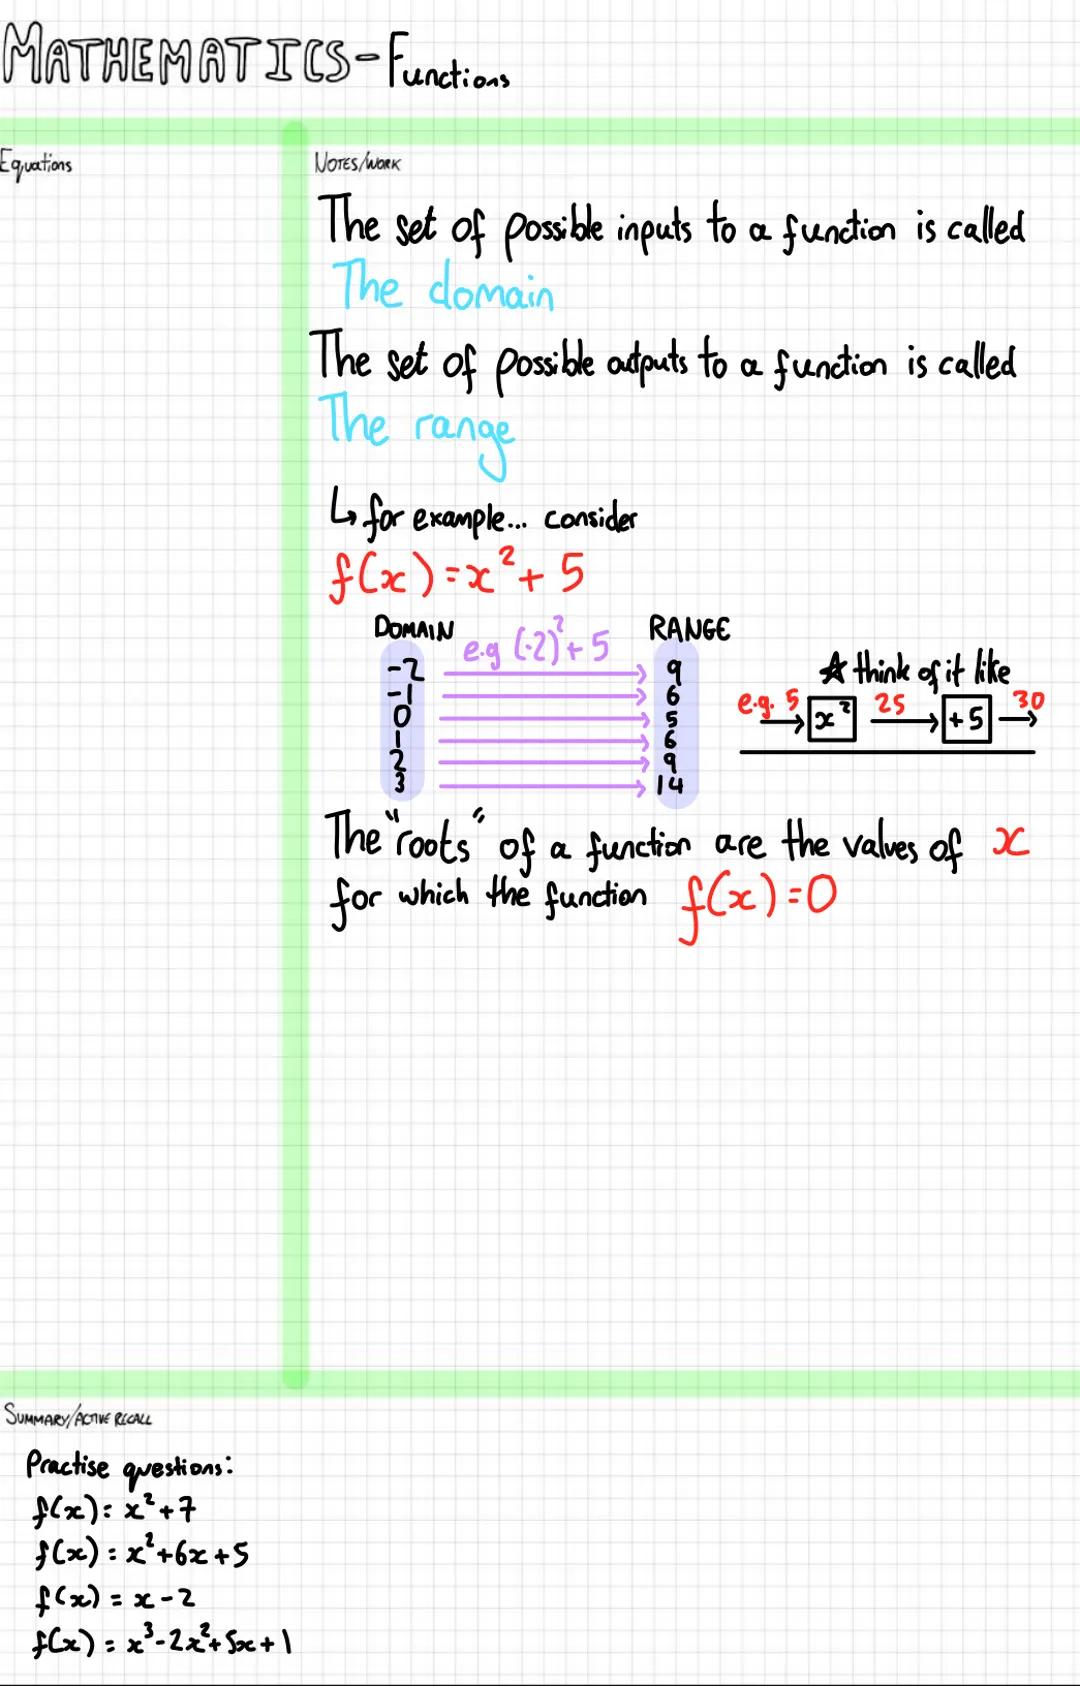 MATHEMATICS - Functions
Equations
NOTES/WORK
The set of possible inputs to a function is called
The domain
The set of possible outputs to a function is called
The range
↳ for example... consider
f(x) = x² + 5
DOMAIN
e.g (-2)² + 5
RANGE
-2 → 9
-1 → 6
0 → 5
1 → 6
2 → 9
3 → 14
☆ think of it like
e.g. 5 → x² → 25 → +5 → 30
The "roots" of a function are the values of x
for which the function f(x) = 0
SUMMARY/ACTIVE RECALL
Practise questions:
f(x) = x² + 7
f(x) = x² + 6x + 5
f(x) = x - 2
f(x) = x³ - 2x² + 5x + 1